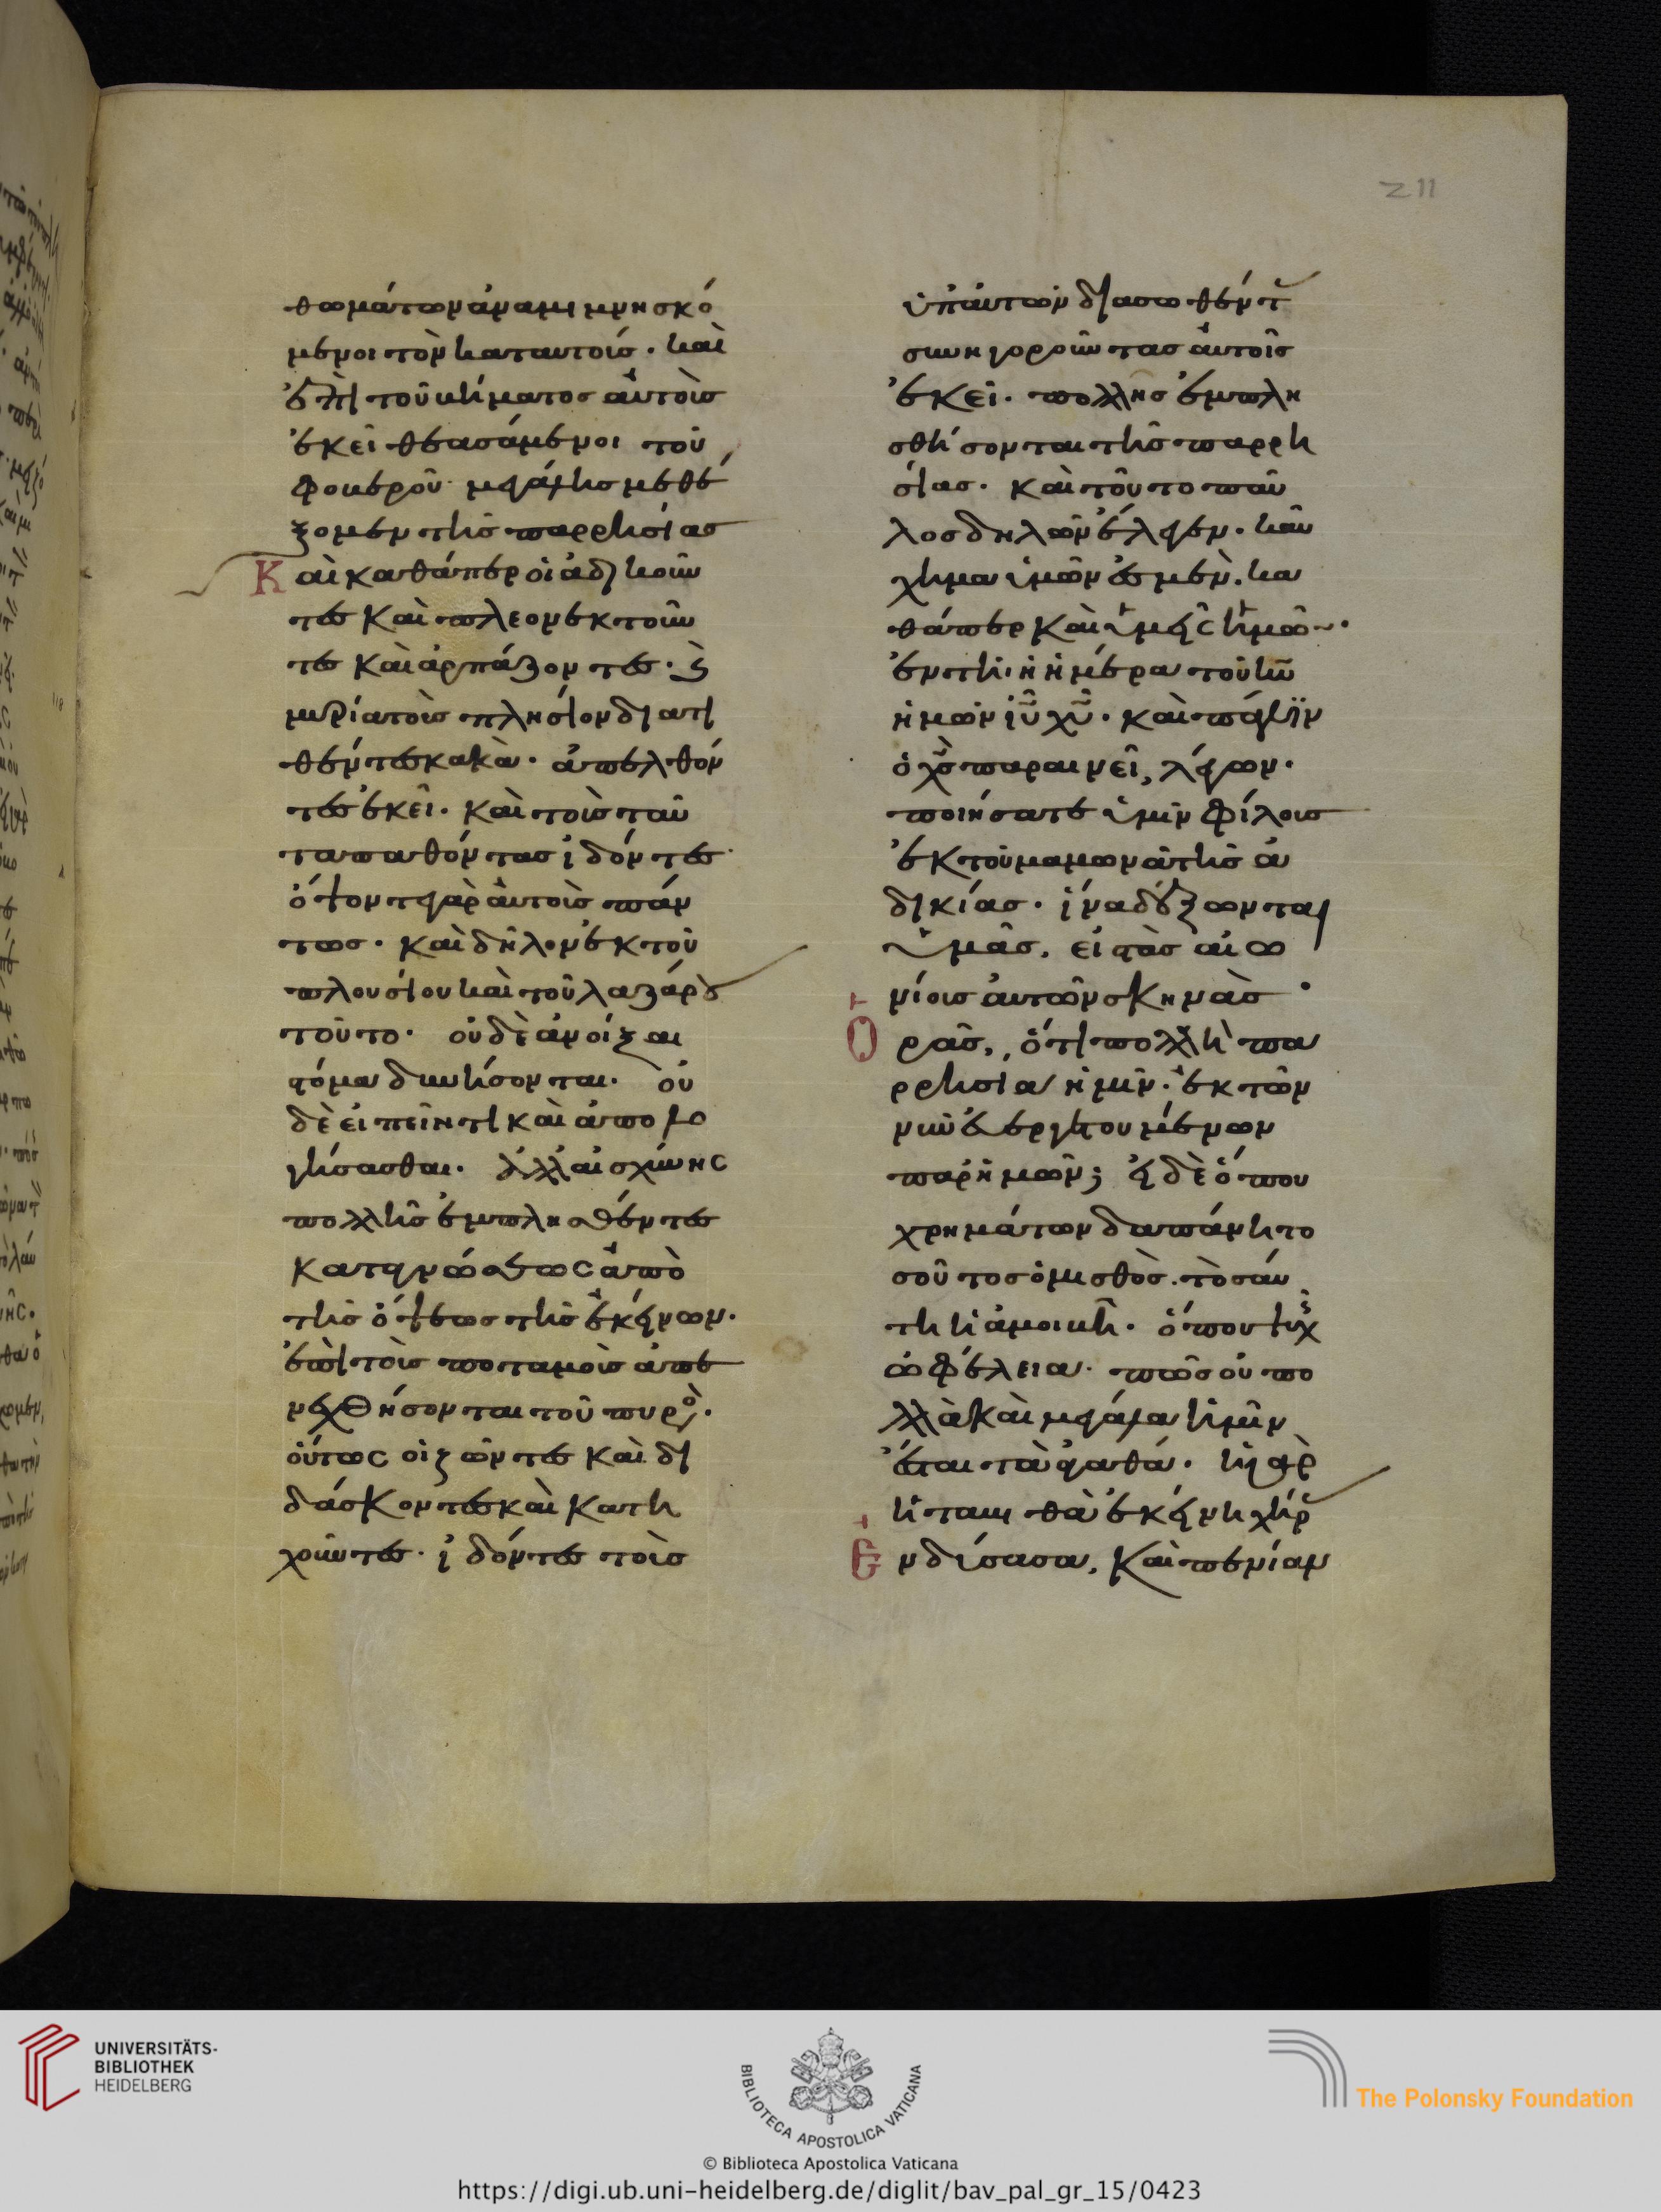 211
θωμάτων ἀναμιμνησκό
μενοι τῶν κατ αυτούς. καὶ
ἐπὶ τοῦ βήματος αὐτοὺς
ἐκεῖ θεασάμενοι τοῦ
φοβεροῦ· μεγάλης μεθέ
ξομεν τῆς παρρησίας
Καὶ καθάπερ οἱ ἀδικοῦν
τες καὶ πλεονεκτοῦν
τες καὶ ἁρπάζοντες· καὶ
μυρία τοῖς πλησίον διατι
θέντες κακὰ· ἀπελθόν
τες ἐκεῖ. καὶ τοὺς ταῦ
τα παθόντας ἰδόντες·
ὄψονται γὰρ αὐτοὺς πάν
τως. καὶ δῆλον ἐκ τοῦ
πλουσίου καὶ τοῦ λαζάρου
τοῦτο· οὐδὲ ἀνοῖξαι
στόμα δυνήσονται. οὐ
δὲ εἰπεῖν τι καὶ ἀπολο
γήσασθαι. ἀλλ αἰσχύνης
πολλῆς ἐμπλησθέντες
καταγνώσεως ἀπὸ
τῆς ὄψεως τῆς ἐκείνων.
ἐπὶ τοὺς ποταμοὺς ἀπε
νεχθήσονται τοῦ πυρός.
οὕτως οἱ ζῶντες καὶ δι
δάσκοντες καὶ κατη
χοῦντες· ἰδόντες τοὺς
ὑπ αὐτῶν διασωθέντας
συνηγοροῦντας αὐτοῖς
ἐκεῖ. πολλῆς ἐμπλη
σθήσονται τῆς παρρη
σίας. καὶ τοῦτο παῦ
λος δηλῶν ἔλεγεν. καύ
χημα ὑμῶν ἐσμὲν. κα
θάπερ καὶ ὑμεῖς ἡμῶν.
ἐν τῆι ἡμέρα τοῦ κυ
ἡμῶν ιυ χυ. καὶ πάλιν
ὁ χς παραινεῖ, λέγων.
ποιήσατε ὑμῖν φίλους
ἐκ τοῦ μαμωνᾶ τῆς ἀ
δικίας. ἵνα δέξωνται
ὑμᾶς, εἰς τὰς αἰω
νίους αὐτῶν σκηνὰς
Ὁρᾶς, ὅτι πολλὴ πα
ρρησία ἡμῖν. ἐκ τῶν
νῦν εὐεργετουμένων
παρ ἡμῶν; εἰ δὲ ὅπου
χρημάτων δαπάνη το
σοῦτος ὁ μισθὸς. τοσαύ
τη ἡ ἀμοιβή. ὅπου ψυχῆς
ὠφέλεια· πῶς οὐ πο
λλὰ καὶ μεγάλα ἡμῖν
ἔσται τὰ ἀγαθά. εἰ γὰρ
ἡ ταβιθὰ ἐκείνη χήρας
Ἐνδύσασα, καὶ πενίαν
UNIVERSITÄTS-
BIBLIOTHEK
HEIDELBERG
BIBLIOTECA APOSTOLICA VATICANA
The Polonsky Foundation
© Biblioteca Apostolica Vaticana
https://digi.ub.uni-heidelberg.de/diglit/bav_pal_gr_15/0423